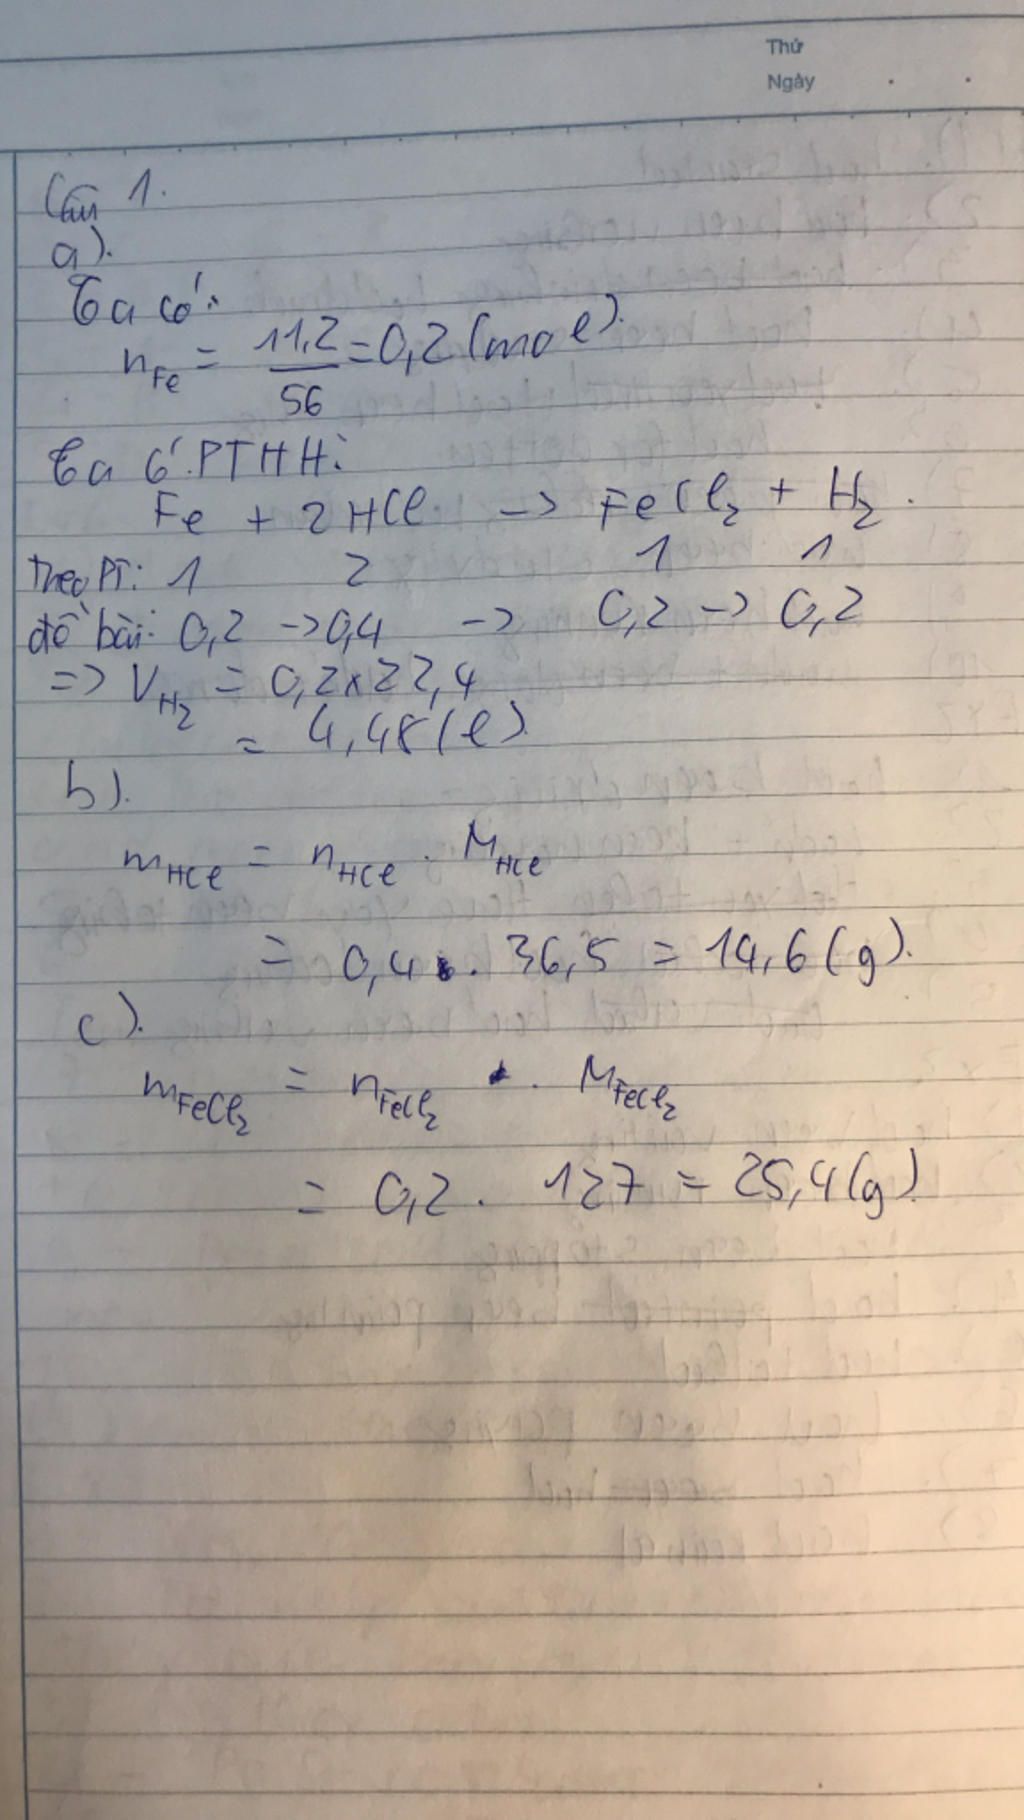 Thứ
Ngày
Câu 1.
a).
Ta có:
nFe = 11,2/56 = 0,2 (mol).
Ta có PTHH:
Fe + 2HCl -> FeCl2 + H2.
Theo PT: 1 2 1 1
đề bài: 0,2 -> 0,4 -> 0,2 -> 0,2
=> VH2 = 0,2x22,4
= 4,48 (l)
b).
mHCl = nHCl . MHCl
= 0,4 . 36,5 = 14,6 (g).
c).
mFeCl2 = nFeCl2 . MFeCl2
= 0,2 . 127 = 25,4 (g).